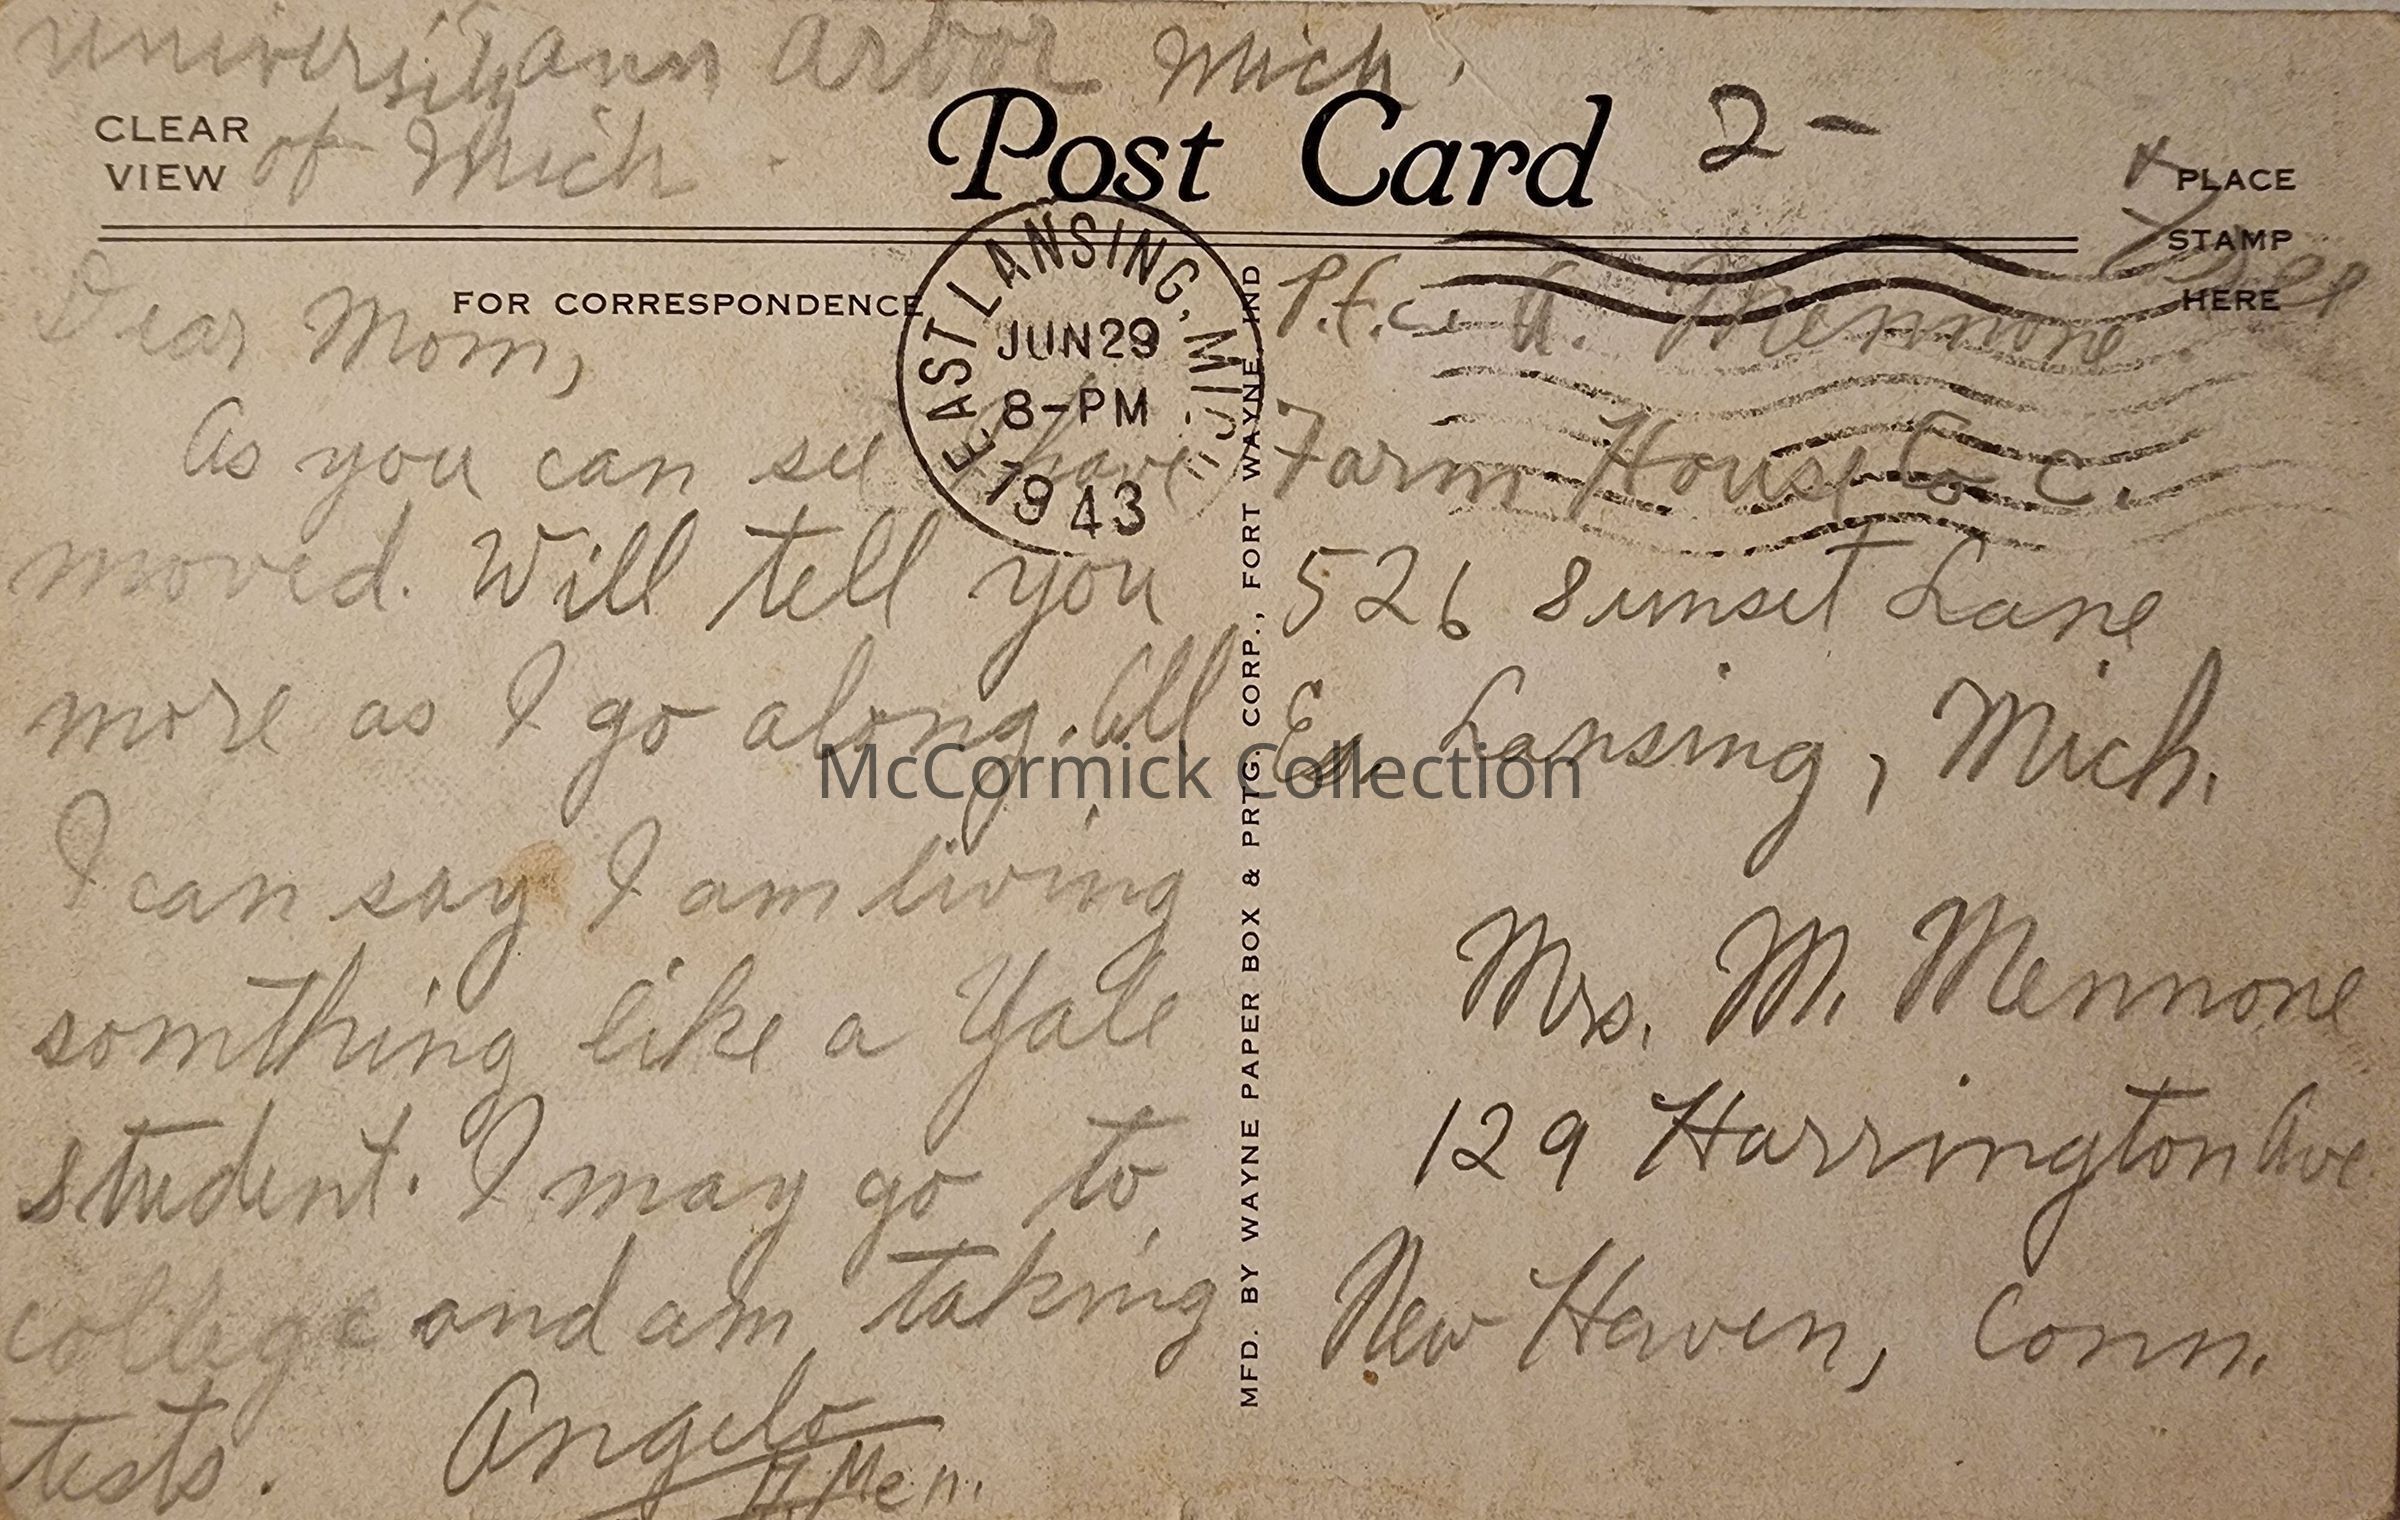 university Ann Arbor Mich.
of Mich
CLEAR
VIEW
Post Card
2 -
PLACE
STAMP
HERE
Free
FOR CORRESPONDENCE
EAST LANSING, MICH.
JUN 29
8-PM
1943
Dear Mom,
As you can see I have
moved. Will tell you
more as I go along. All
I can say I am living
somthing like a Yale
student. I may go to
college and am taking
tests. Angelo
A. Men.
MFD. BY WAYNE PAPER BOX & PRTG. CORP., FORT WAYNE, IND
P.f.c. A. Mennone
Farm House Co C.
526 Sunset Lane
Es. Lansing, Mich.
Mrs. M. Mennone
129 Harrington Ave
New Haven, Conn.
McCormick Collection